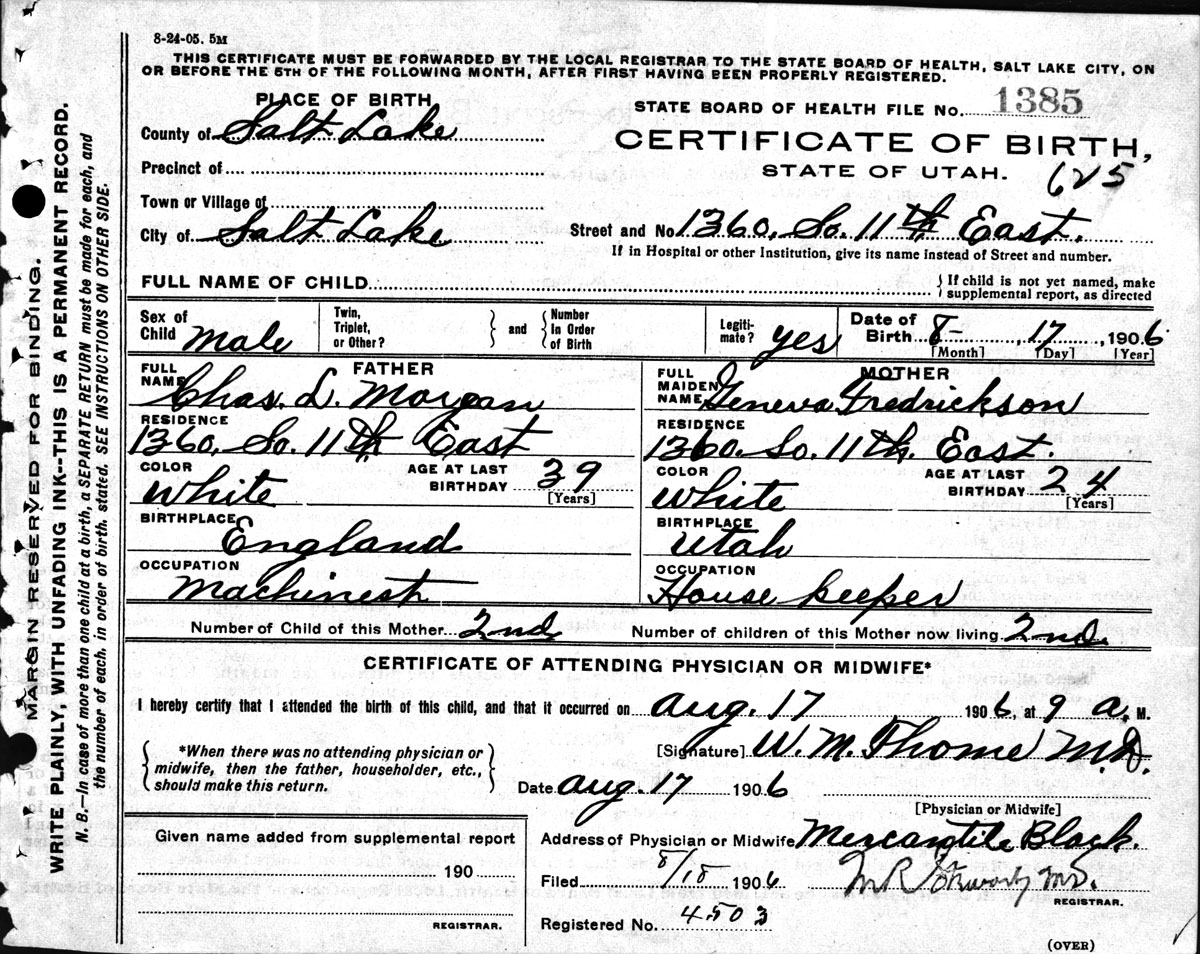 8-24-05. 5M
THIS CERTIFICATE MUST BE FORWARDED BY THE LOCAL REGISTRAR TO THE STATE BOARD OF HEALTH, SALT LAKE CITY, ON
OR BEFORE THE 5TH OF THE FOLLOWING MONTH, AFTER FIRST HAVING BEEN PROPERLY REGISTERED.
MARGIN RESERVED FOR BINDING.
WRITE PLAINLY, WITH UNFADING INK--THIS IS A PERMANENT RECORD.
N. B.—In case of more than one child at a birth, a SEPARATE RETURN must be made for each, and
the number of each, in order of birth, stated. SEE INSTRUCTIONS ON OTHER SIDE.
PLACE OF BIRTH
County of Salt Lake
Precinct of
Town or Village of
City of Salt Lake
STATE BOARD OF HEALTH FILE No. 1385
CERTIFICATE OF BIRTH,
STATE OF UTAH. 625
Street and No 1360. So. 11th East.
If in Hospital or other Institution, give its name instead of Street and number.
FULL NAME OF CHILD
If child is not yet named, make
supplemental report, as directed
Sex of
Child Male
Twin,
Triplet,
or Other?
and
Number
In Order
of Birth
Legiti-
mate? yes
Date of
Birth 8- 17, 1906
[Month] [Day] [Year]
FATHER
FULL
NAME Chas. L. Morgan
RESIDENCE
1360. So. 11th East
COLOR
White
AGE AT LAST
BIRTHDAY 39
[Years]
BIRTHPLACE
England
OCCUPATION
Machinest
MOTHER
FULL
MAIDEN
NAME Geneva Fredrickson
RESIDENCE
1360. So. 11th. East.
COLOR
White
AGE AT LAST
BIRTHDAY 24
[Years]
BIRTHPLACE
Utah
OCCUPATION
House keeper
Number of Child of this Mother 2nd
Number of children of this Mother now living 2nd.
CERTIFICATE OF ATTENDING PHYSICIAN OR MIDWIFE*
I hereby certify that I attended the birth of this child, and that it occurred on Aug. 17 1906, at 9 a. M.
*When there was no attending physician or
midwife, then the father, householder, etc.,
should make this return.
[Signature] W. M. Thome M.D.
Date Aug. 17 1906
[Physician or Midwife]
Given name added from supplemental report
190
REGISTRAR.
Address of Physician or Midwife Mercantile Block.
Filed 8/18 1906
M R Stewart MD.
REGISTRAR.
Registered No. 4503
(OVER)